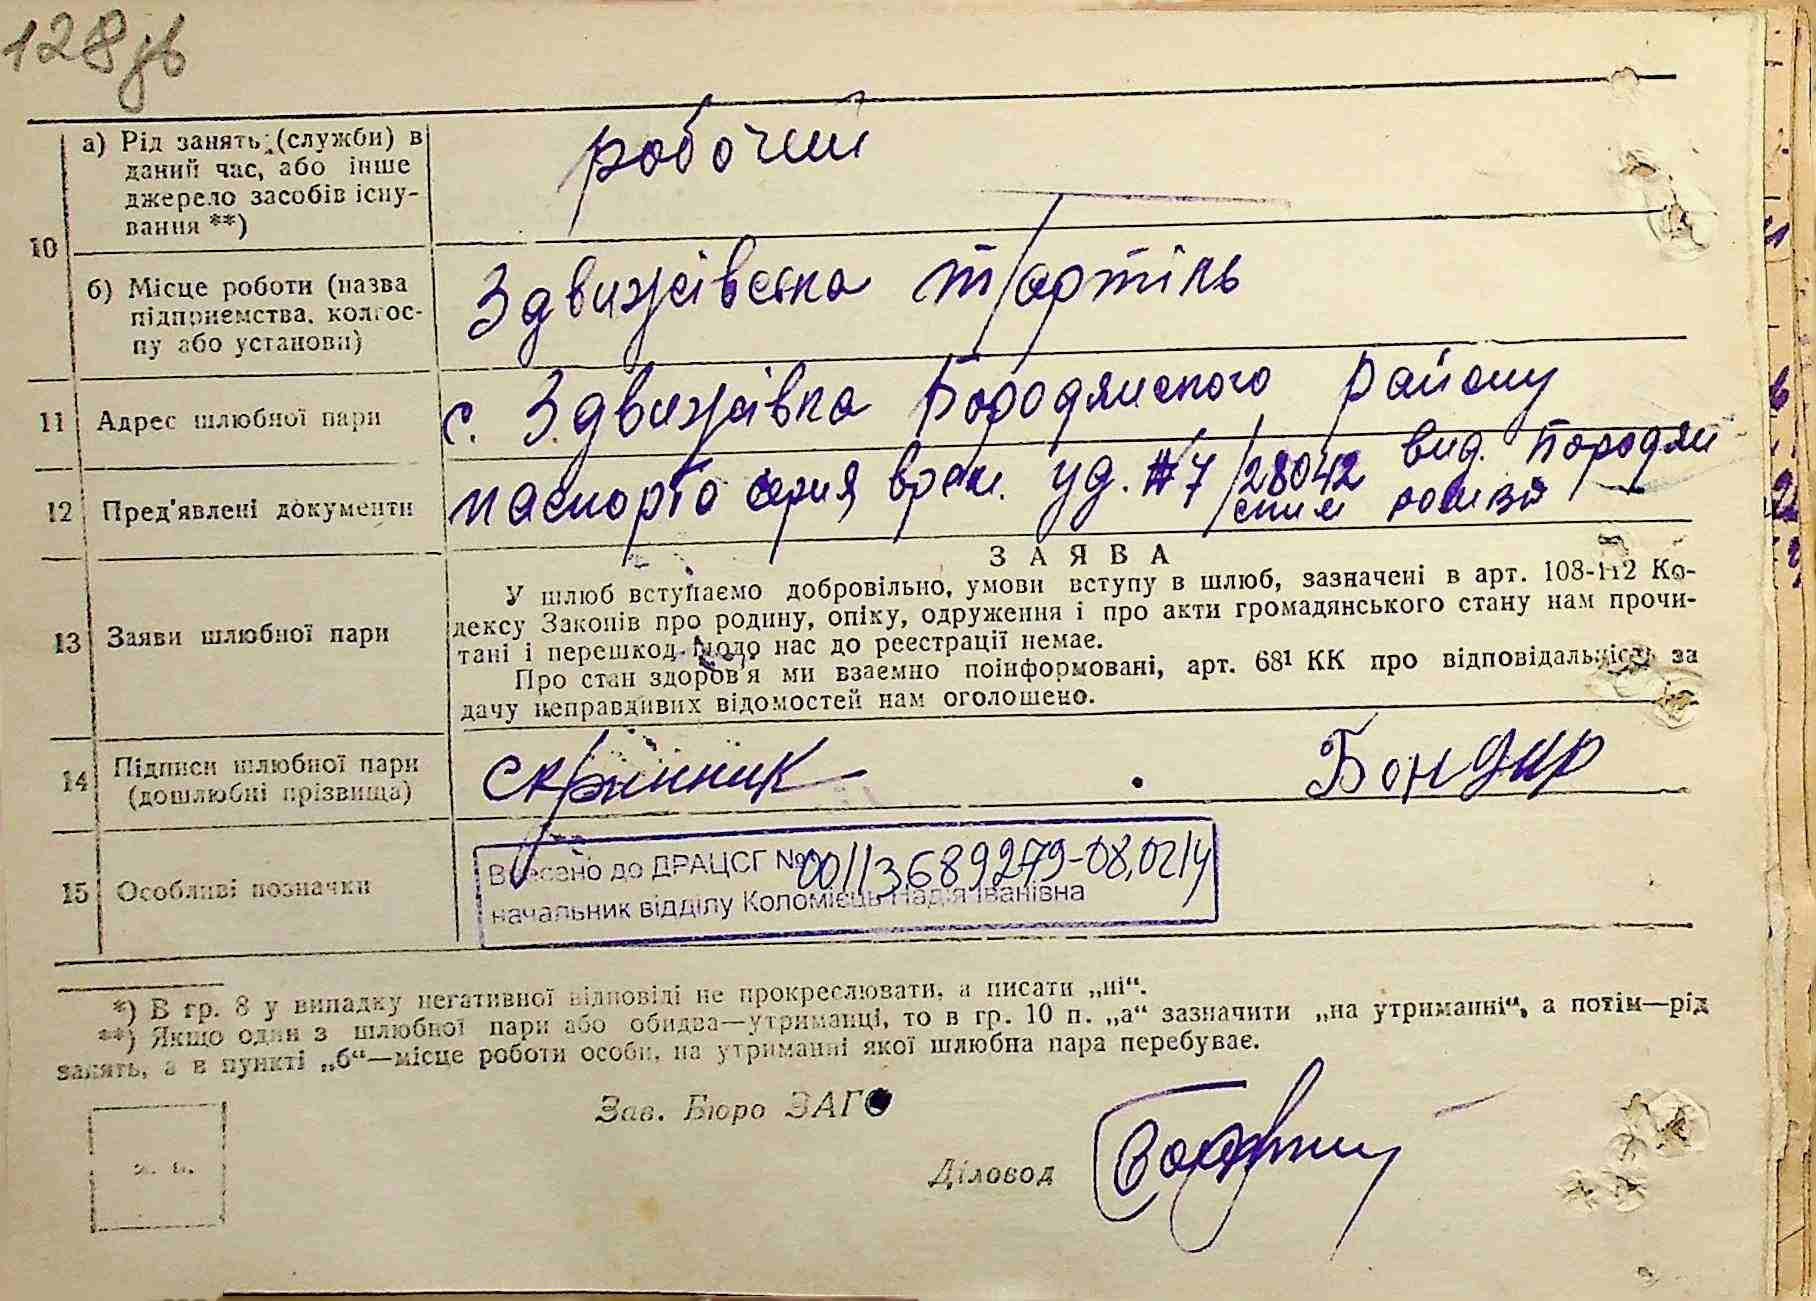 128 зв
10
а) Рід занять (служби) в
даний час, або інше
джерело засобів існу-
вання **)
робочий
б) Місце роботи (назва
підприємства, колгос-
пу або установи)
Здвижівська т/артіль
11
Адрес шлюбної пари
с. Здвижівка Бородянского району
12
Пред'явлені документи
паспорта серия врем. уд. #7/28042 вид. Бородян
ским
13
Заяви шлюбної пари
ЗАЯВА
У шлюб вступаємо добровільно, умови вступу в шлюб, зазначені в арт. 108-112 Ко-
дексу Законів про родину, опіку, одруження і про акти громадянського стану нам прочи-
тані і перешкод щодо нас до реєстрації немає.
Про стан здоров'я ми взаємно поінформовані, арт. 68¹ КК про відповідальність за
дачу неправдивих відомостей нам оголошено.
14
Підписи шлюбної пари
(дошлюбні прізвища)
Скринник Бондар
15
Особливі позначки
Внесено до ДРАЦСГ № 00113689279-08.02.14
начальник відділу Коломієць Надія Іванівна
*) В гр. 8 у випадку негативної відповіді не прокреслювати, а писати „ні“.
**) Якщо один з шлюбної пари або обидва—утриманці, то в гр. 10 п. „а“ зазначити „на утриманні“, а потім—рід
занять, а в пункті „б“—місце роботи особи, на утриманні якої шлюбна пара перебуває.
Зав. Бюро ЗАГС
Діловод